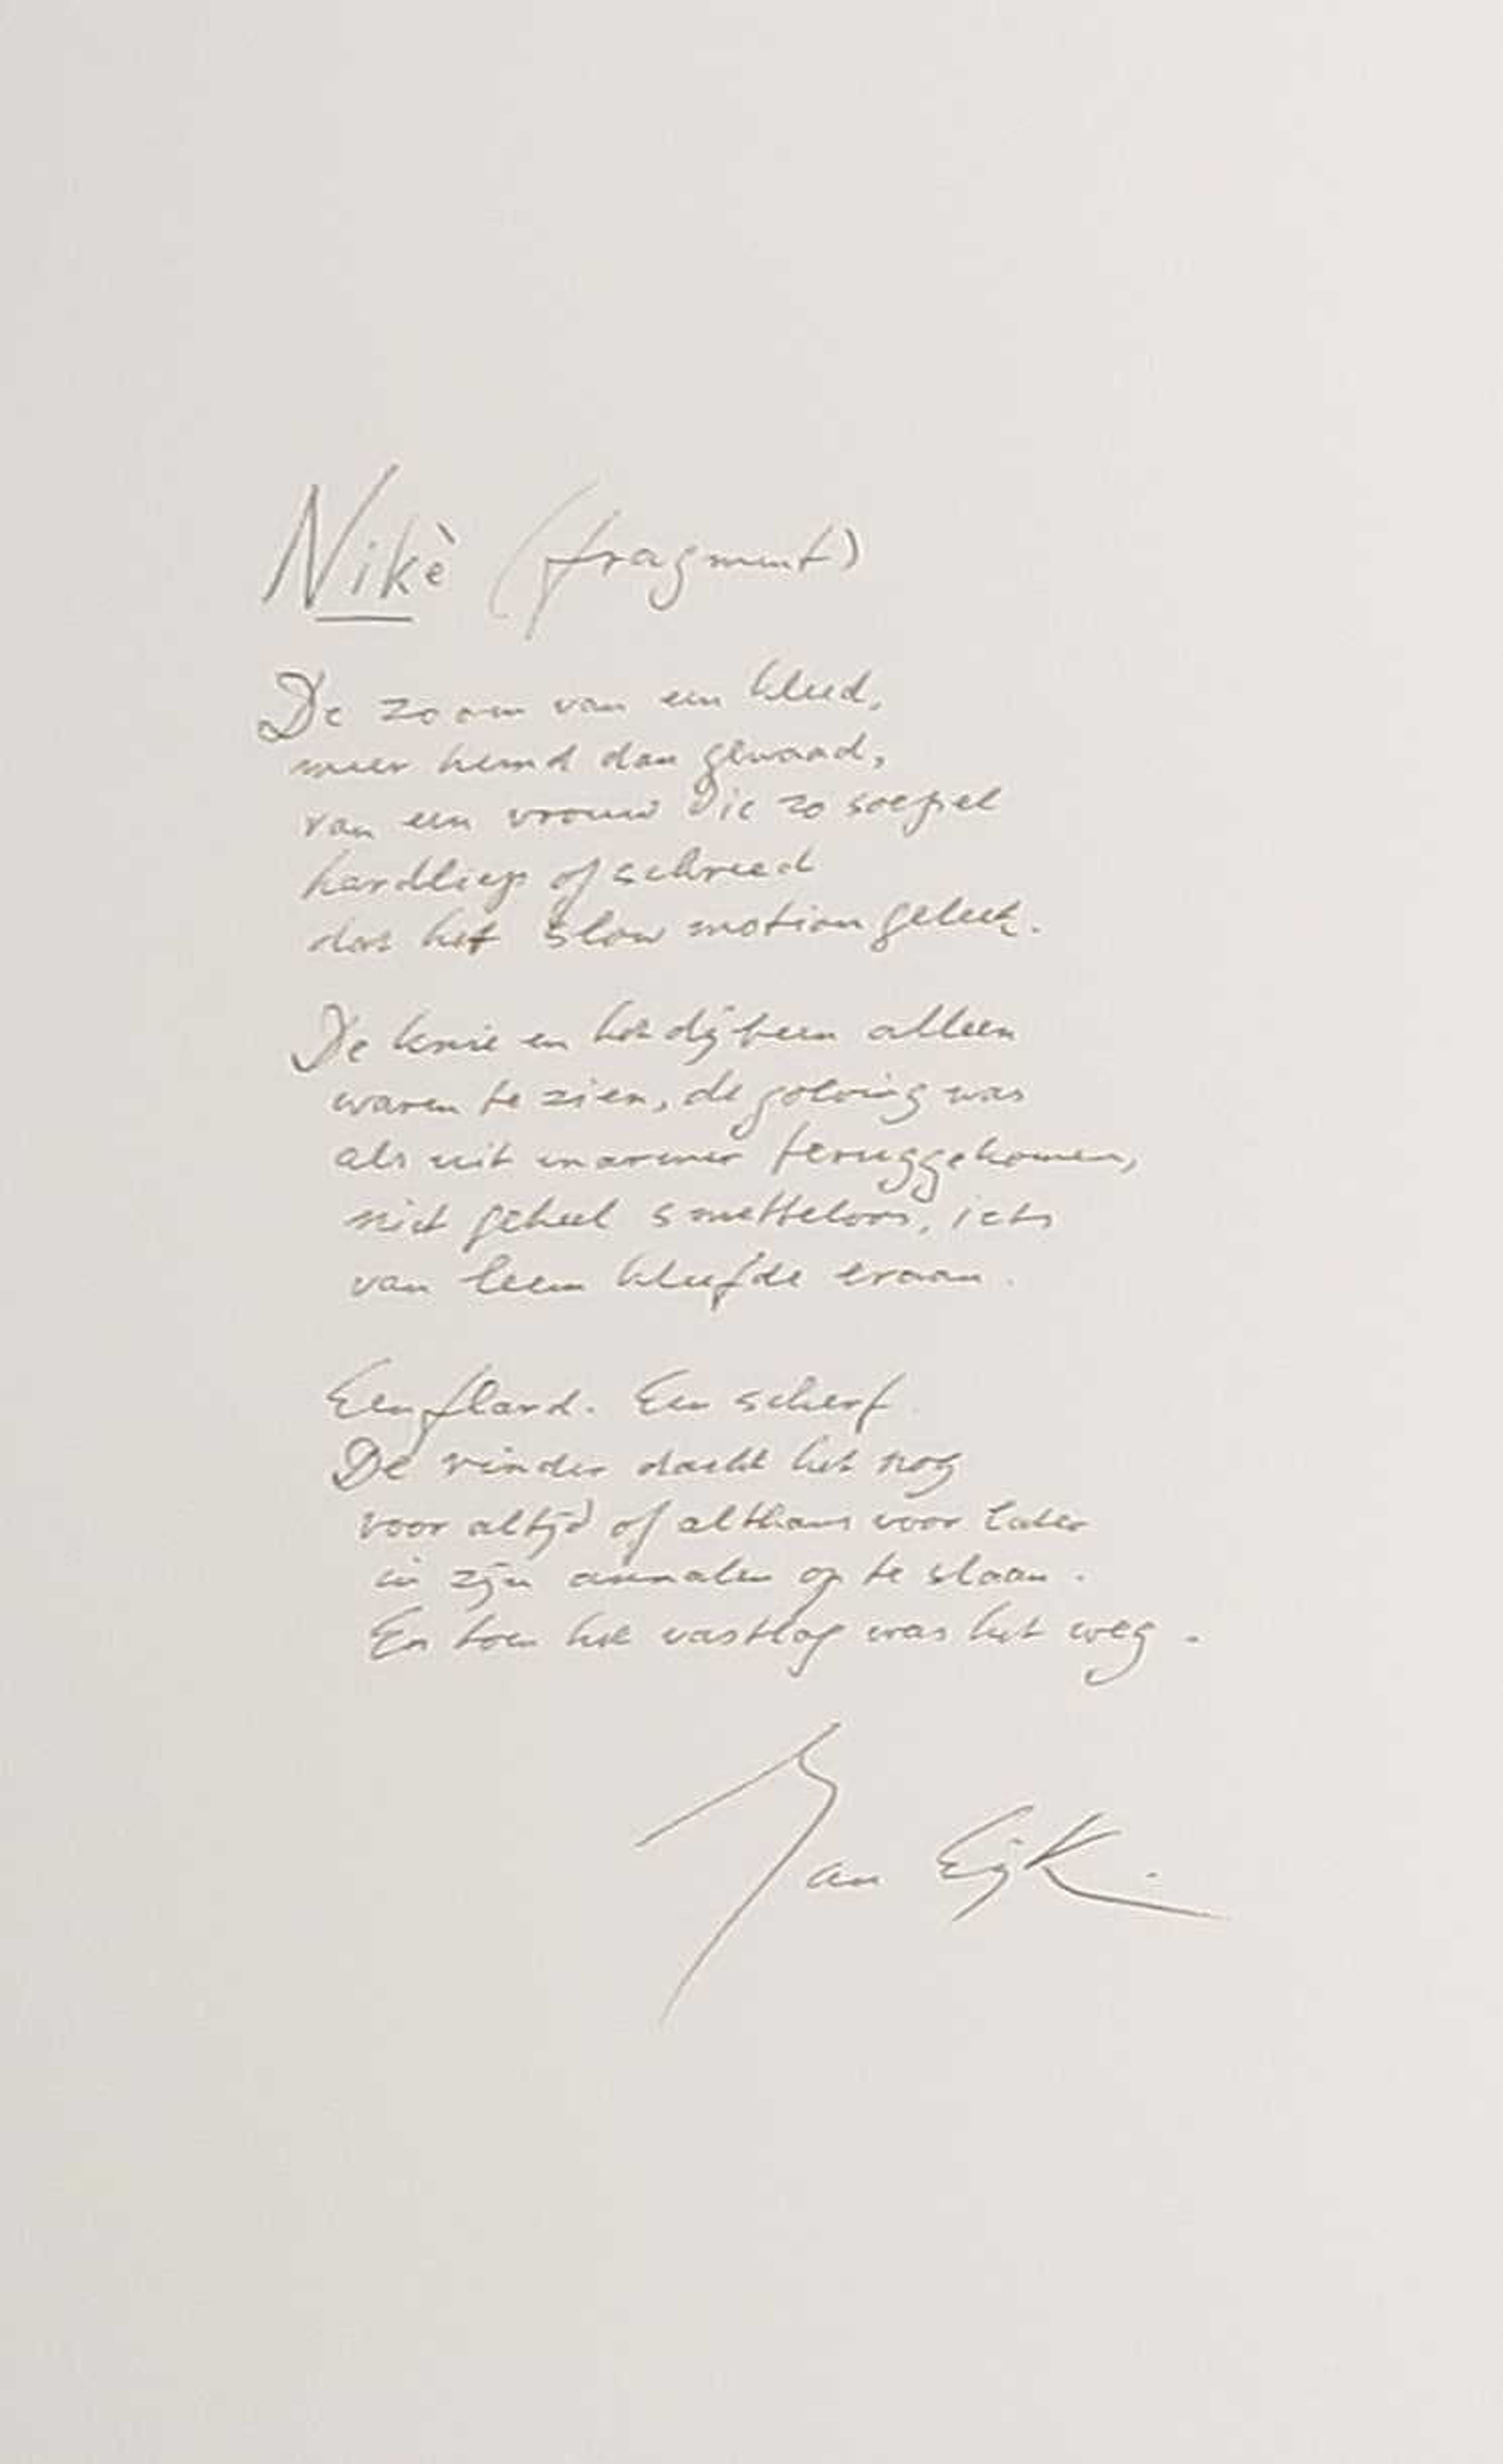 Nikè (fragment)
De zoom van een kleed,
meer hemd dan gewaad,
van een vrouw die zo soepel
hardliep of schreed
dat het slow motion geleek.
De knie en het dijbeen alleen
waren te zien, de golving was
als uit marmer teruggekomen,
niet geheel smetteloos, iets
van leem kleefde eraan.
Een flard. Een scherf.
De vinder dacht het nog
voor altijd of althans voor later
in zijn annalen op te slaan.
En toen het vastlag was het weg.
Jan Eijk.